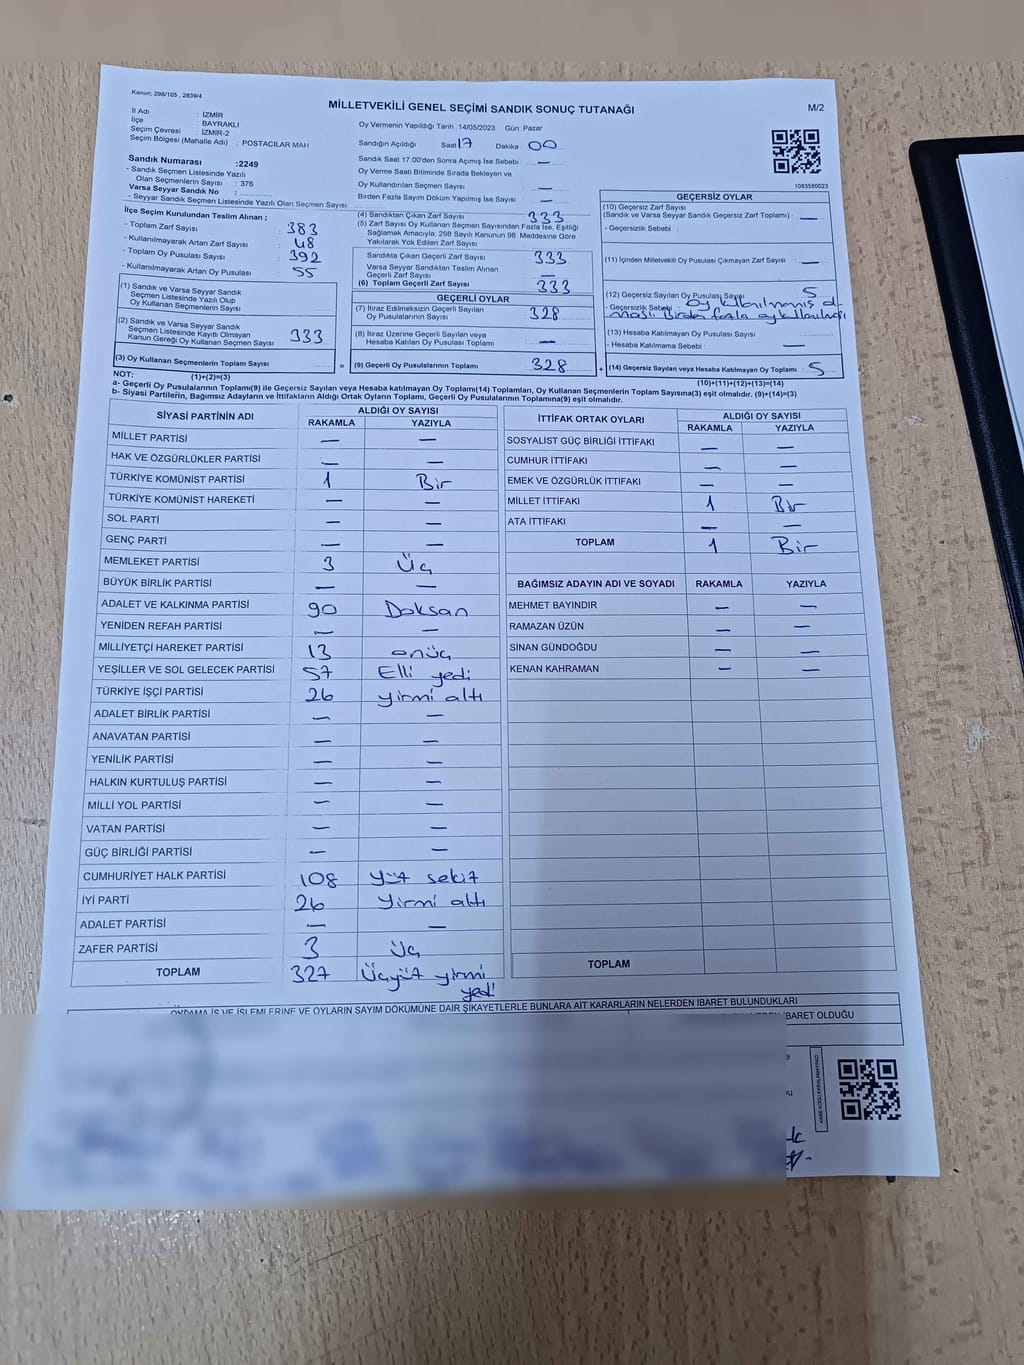 Kanun: 298/105 , 2839/4
MİLLETVEKİLİ GENEL SEÇİMİ SANDIK SONUÇ TUTANAĞI
M/2
İl Adı : İZMİR
İlçe : BAYRAKLI
Seçim Çevresi : İZMİR-2
Seçim Bölgesi (Mahalle Adı) : POSTACILAR MAH
Sandık Numarası :2249
- Sandık Seçmen Listesinde Yazılı
Olan Seçmenlerin Sayısı : 376
Varsa Seyyar Sandık No :
- Seyyar Sandık Seçmen Listesinde Yazılı Olan Seçmen Sayısı:
Oy Vermenin Yapıldığı Tarih : 14/05/2023 Gün: Pazar
Sandığın Açıldığı Saat 17 Dakika 00
Sandık Saat 17.00'den Sonra Açımış İse Sebebi : —
Oy Verme Saati Bitiminde Sırada Bekleyen ve
Oy Kullandırılan Seçmen Sayısı : —
Birden Fazla Sayım Döküm Yapılmış İse Sayısı : —
1083580023
İlçe Seçim Kurulundan Teslim Alınan ;
- Toplam Zarf Sayısı : 383
- Kullanılmayarak Artan Zarf Sayısı : 48
- Toplam Oy Pusulası Sayısı : 392
- Kullanılmayarak Artan Oy Pusulası : 55
(1) Sandık ve Varsa Seyyar Sandık
Seçmen Listesinde Yazılı Olup
Oy Kullanan Seçmenlerin Sayısı
(2) Sandık ve Varsa Seyyar Sandık
Seçmen Listesinde Kayıtlı Olmayan
Kanun Gereği Oy Kullanan Seçmen Sayısı : 333
(3) Oy Kullanan Seçmenlerin Toplam Sayısı
(1)+(2)=(3)
(4) Sandıktan Çıkan Zarf Sayısı : 333
(5) Zarf Sayısı Oy Kullanan Seçmen Sayısından Fazla İse, Eşitliği
Sağlamak Amacıyla, 298 Sayılı Kanunun 98. Maddesine Göre
Yakılarak Yok Edilen Zarf Sayısı :
Sandıkta Çıkan Geçerli Zarf Sayısı : 333
Varsa Seyyar Sandıktan Teslim Alınan
Geçerli Zarf Sayısı : —
(6) Toplam Geçerli Zarf Sayısı : 333
GEÇERLİ OYLAR
(7) İtiraz Edilmeksizin Geçerli Sayılan
Oy Pusulalarının Sayısı : 328
(8) İtiraz Üzerine Geçerli Sayılan veya
Hesaba Katılan Oy Pusulası Toplamı : —
= (9) Geçerli Oy Pusulalarının Toplamı : 328
GEÇERSİZ OYLAR
(10) Geçersiz Zarf Sayısı
(Sandık ve Varsa Seyyar Sandık Geçersiz Zarf Toplamı) : —
- Geçersizlik Sebebi :
(11) İçinden Milletvekili Oy Pusulası Çıkmayan Zarf Sayısı : —
(12) Geçersiz Sayılan Oy Pusulası Sayısı : 5
- Geçersizlik Sebebi : oy kullanılmamış ol-
ması Birden fazla oy kullanılması
(13) Hesaba Katılmayan Oy Pusulası Sayısı
- Hesaba Katılmama Sebebi : —
+ (14) Geçersiz Sayılan veya Hesaba Katılmayan Oy Toplamı : 5
(10)+(11)+(12)+(13)=(14)
NOT:
a- Geçerli Oy Pusulalarının Toplamı(9) ile Geçersiz Sayılan veya Hesaba katılmayan Oy Toplamı(14) Toplamları, Oy Kullanan Seçmenlerin Toplam Sayısına(3) eşit olmalıdır. (9)+(14)=(3)
b- Siyasi Partilerin, Bağımsız Adayların ve İttifakların Aldığı Ortak Oyların Toplamı, Geçerli Oy Pusulalarının Toplamına(9) eşit olmalıdır.
SİYASİ PARTİNİN ADI ALDIĞI OY SAYISI
RAKAMLA YAZIYLA
MİLLET PARTİSİ — —
HAK VE ÖZGÜRLÜKLER PARTİSİ — —
TÜRKİYE KOMÜNİST PARTİSİ 1 Bir
TÜRKİYE KOMÜNİST HAREKETİ — —
SOL PARTİ — —
GENÇ PARTİ — —
MEMLEKET PARTİSİ 3 Üç
BÜYÜK BİRLİK PARTİSİ — —
ADALET VE KALKINMA PARTİSİ 90 Doksan
YENİDEN REFAH PARTİSİ — —
MİLLİYETÇİ HAREKET PARTİSİ 13 onüç
YEŞİLLER VE SOL GELECEK PARTİSİ 57 Elli yedi
TÜRKİYE İŞÇİ PARTİSİ 26 yirmi altı
ADALET BİRLİK PARTİSİ — —
ANAVATAN PARTİSİ — —
YENİLİK PARTİSİ — —
HALKIN KURTULUŞ PARTİSİ — —
MİLLİ YOL PARTİSİ — —
VATAN PARTİSİ — —
GÜÇ BİRLİĞİ PARTİSİ — —
CUMHURİYET HALK PARTİSİ 108 yüz sekiz
İYİ PARTİ 26 yirmi altı
ADALET PARTİSİ — —
ZAFER PARTİSİ 3 Üç
TOPLAM 327 Üçyüz yirmi
yedi
İTTİFAK ORTAK OYLARI ALDIĞI OY SAYISI
RAKAMLA YAZIYLA
SOSYALİST GÜÇ BİRLİĞİ İTTİFAKI — —
CUMHUR İTTİFAKI — —
EMEK VE ÖZGÜRLÜK İTTİFAKI — —
MİLLET İTTİFAKI 1 Bir
ATA İTTİFAKI — —
TOPLAM 1 Bir
BAĞIMSIZ ADAYIN ADI VE SOYADI RAKAMLA YAZIYLA
MEHMET BAYINDIR — —
RAMAZAN ÜZÜN — —
SİNAN GÜNDOĞDU — —
KENAN KAHRAMAN — —
TOPLAM
OYLAMA İŞ VE İŞLEMLERİNE VE OYLARIN SAYIM DÖKÜMÜNE DAİR ŞİKAYETLERLE BUNLARA AİT KARARLARIN NELERDEN İBARET BULUNDUKLARI
İBARET OLDUĞU